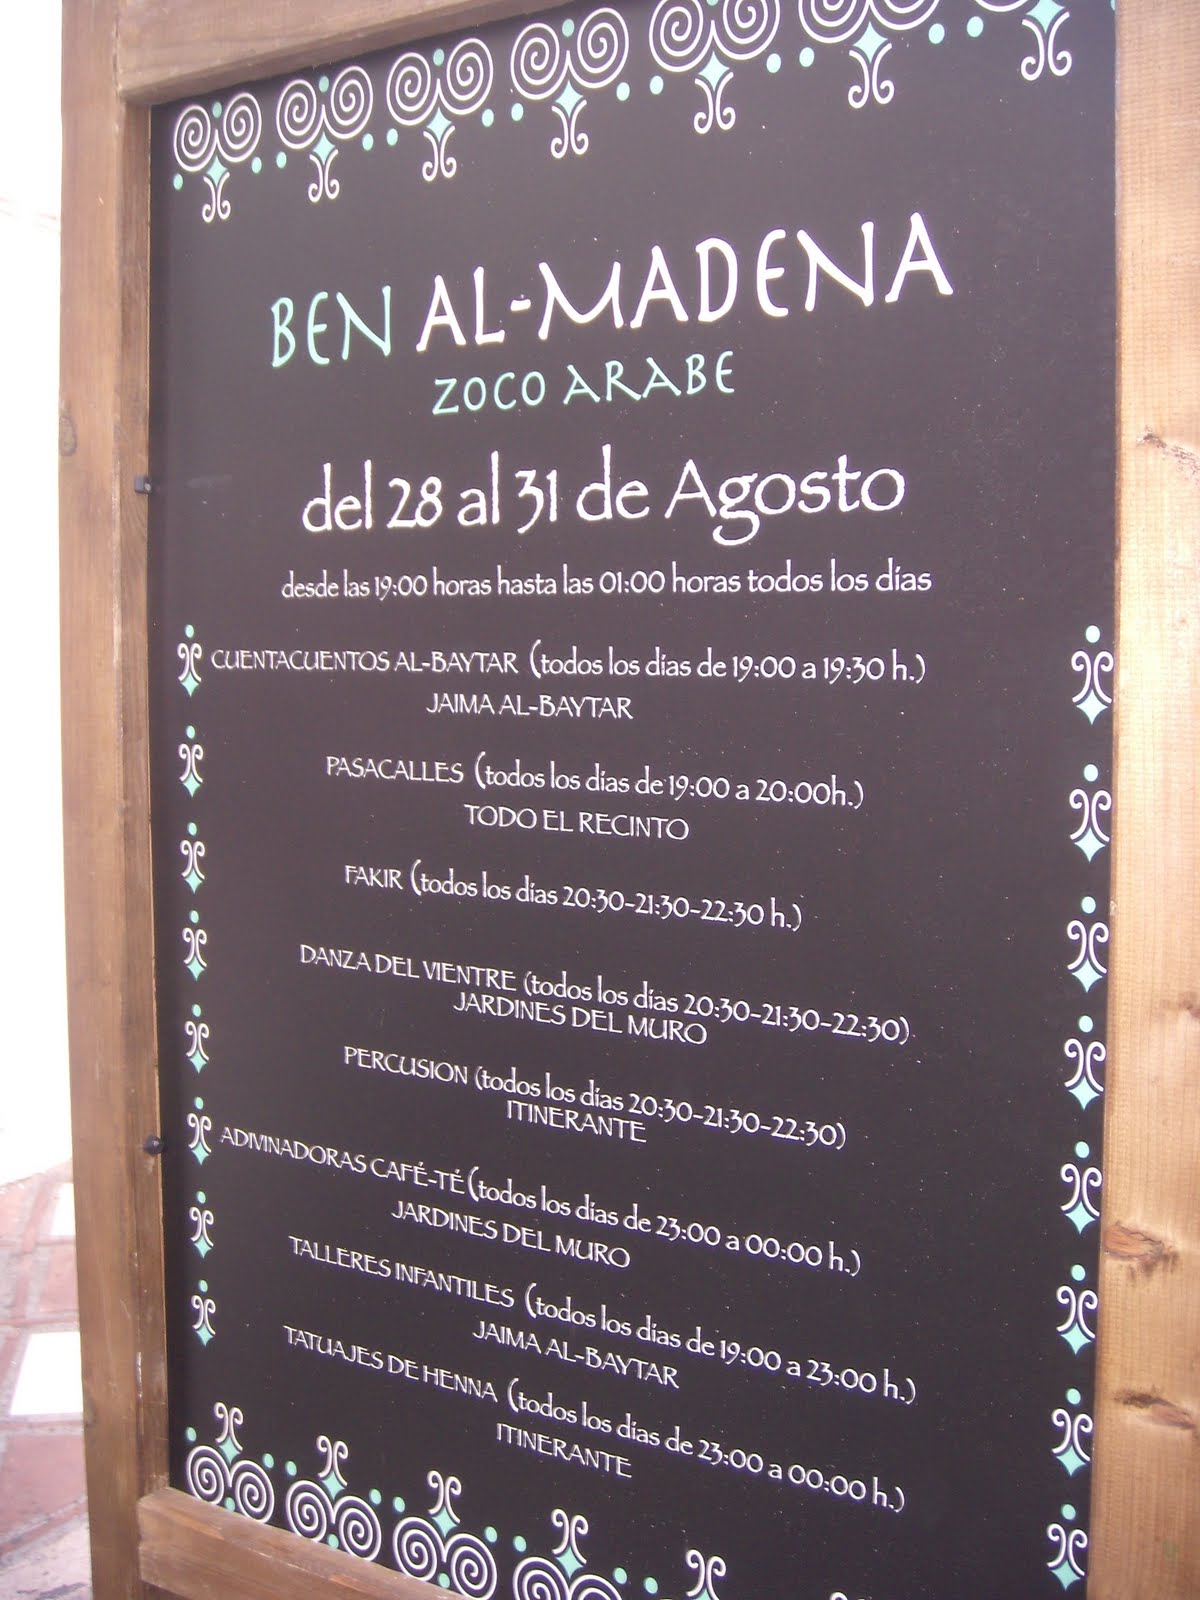 BEN AL-MADENA
ZOCO ARABE
del 28 al 31 de Agosto
desde las 19:00 horas hasta las 01:00 horas todos los días
CUENTACUENTOS AL-BAYTAR (todos los días de 19:00 a 19:30 h.)
JAIMA AL-BAYTAR
PASACALLES (todos los días de 19:00 a 20:00h.)
TODO EL RECINTO
FAKIR (todos los días 20:30-21:30-22:30 h.)
DANZA DEL VIENTRE (todos los días 20:30-21:30-22:30)
JARDINES DEL MURO
PERCUSION (todos los días 20:30-21:30-22:30)
ITINERANTE
ADIVINADORAS CAFÉ-TÉ (todos los días de 23:00 a 00:00 h.)
JARDINES DEL MURO
TALLERES INFANTILES (todos los días de 19:00 a 23:00 h.)
JAIMA AL-BAYTAR
TATUAJES DE HENNA (todos los días de 23:00 a 00:00 h.)
ITINERANTE